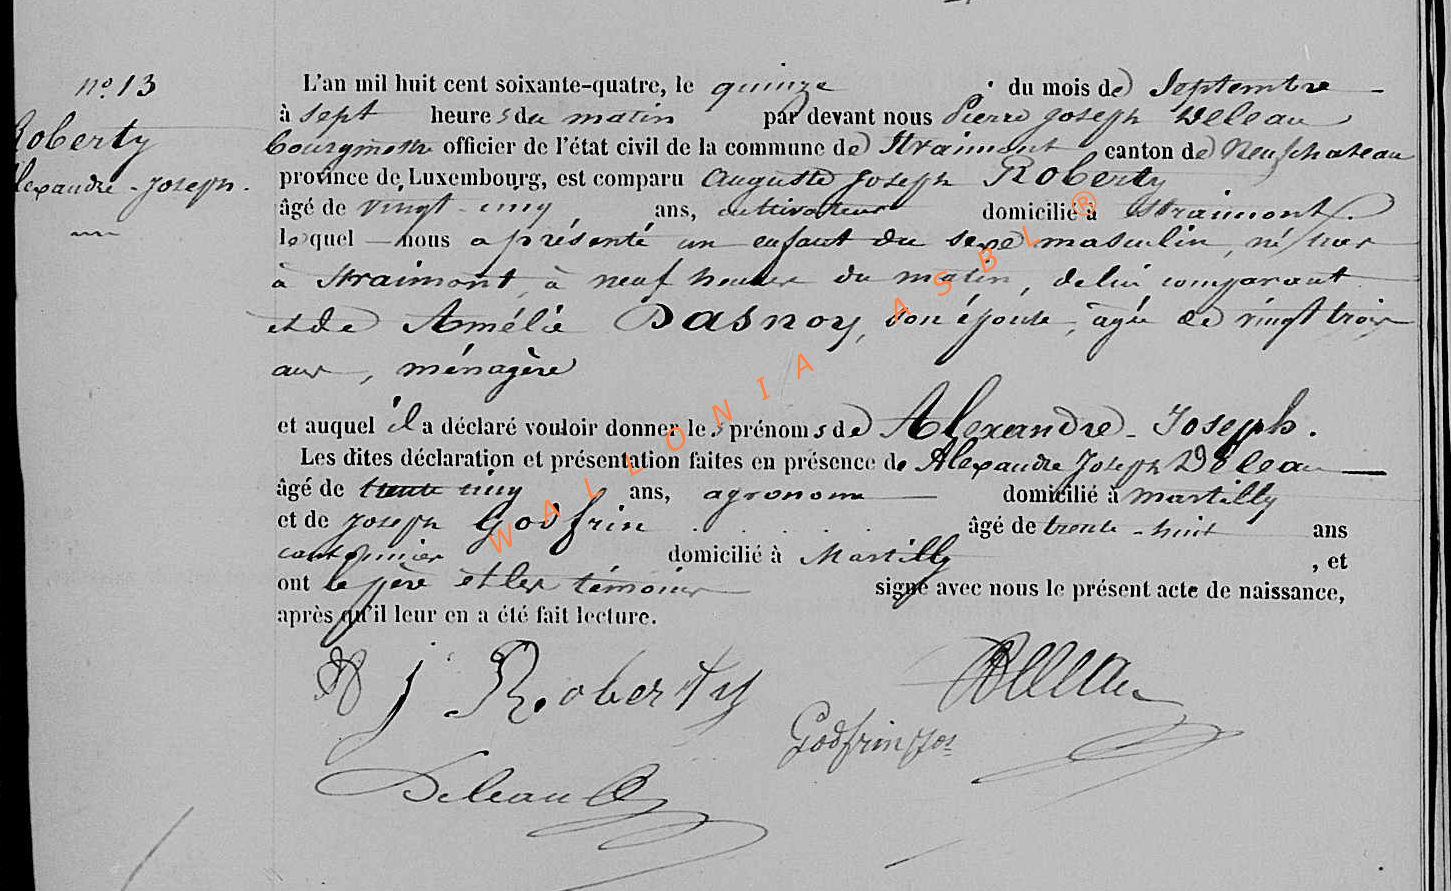 nº 13
Roberty
Alexandre-Joseph.
L'an mil huit cent soixante-quatre, le quinze du mois de Septembre
à sept heures du matin par devant nous Pierre Joseph Deleau
bourgmestre officier de l'état civil de la commune de Straimont canton de Neufchateau
province de Luxembourg, est comparu Auguste Joseph Roberty
âgé de vingt-cinq ans, cultivateur domicilié à Straimont.
lequel nous a présenté un enfant du sexe masculin, né hier
à Straimont, à neuf heures du matin, de lui comparant
et de Amélie Dasnoy, son épouse, âgée de vingt trois
ans, ménagère
et auquel il a déclaré vouloir donner les prénoms de Alexandre-Joseph.
Les dites déclaration et présentation faites en présence de Alexandre Joseph Deleau
âgé de trente cinq ans, agronome domicilié à Martilly
et de Joseph Godfrin âgé de trente-huit ans
cantonnier domicilié à Martilly, et
ont le père et les témoins signé avec nous le présent acte de naissance,
après qu'il leur en a été fait lecture.
j Roberty
Deleau
Godfrin Jos
Deleau
WALLONIA ASBL ®